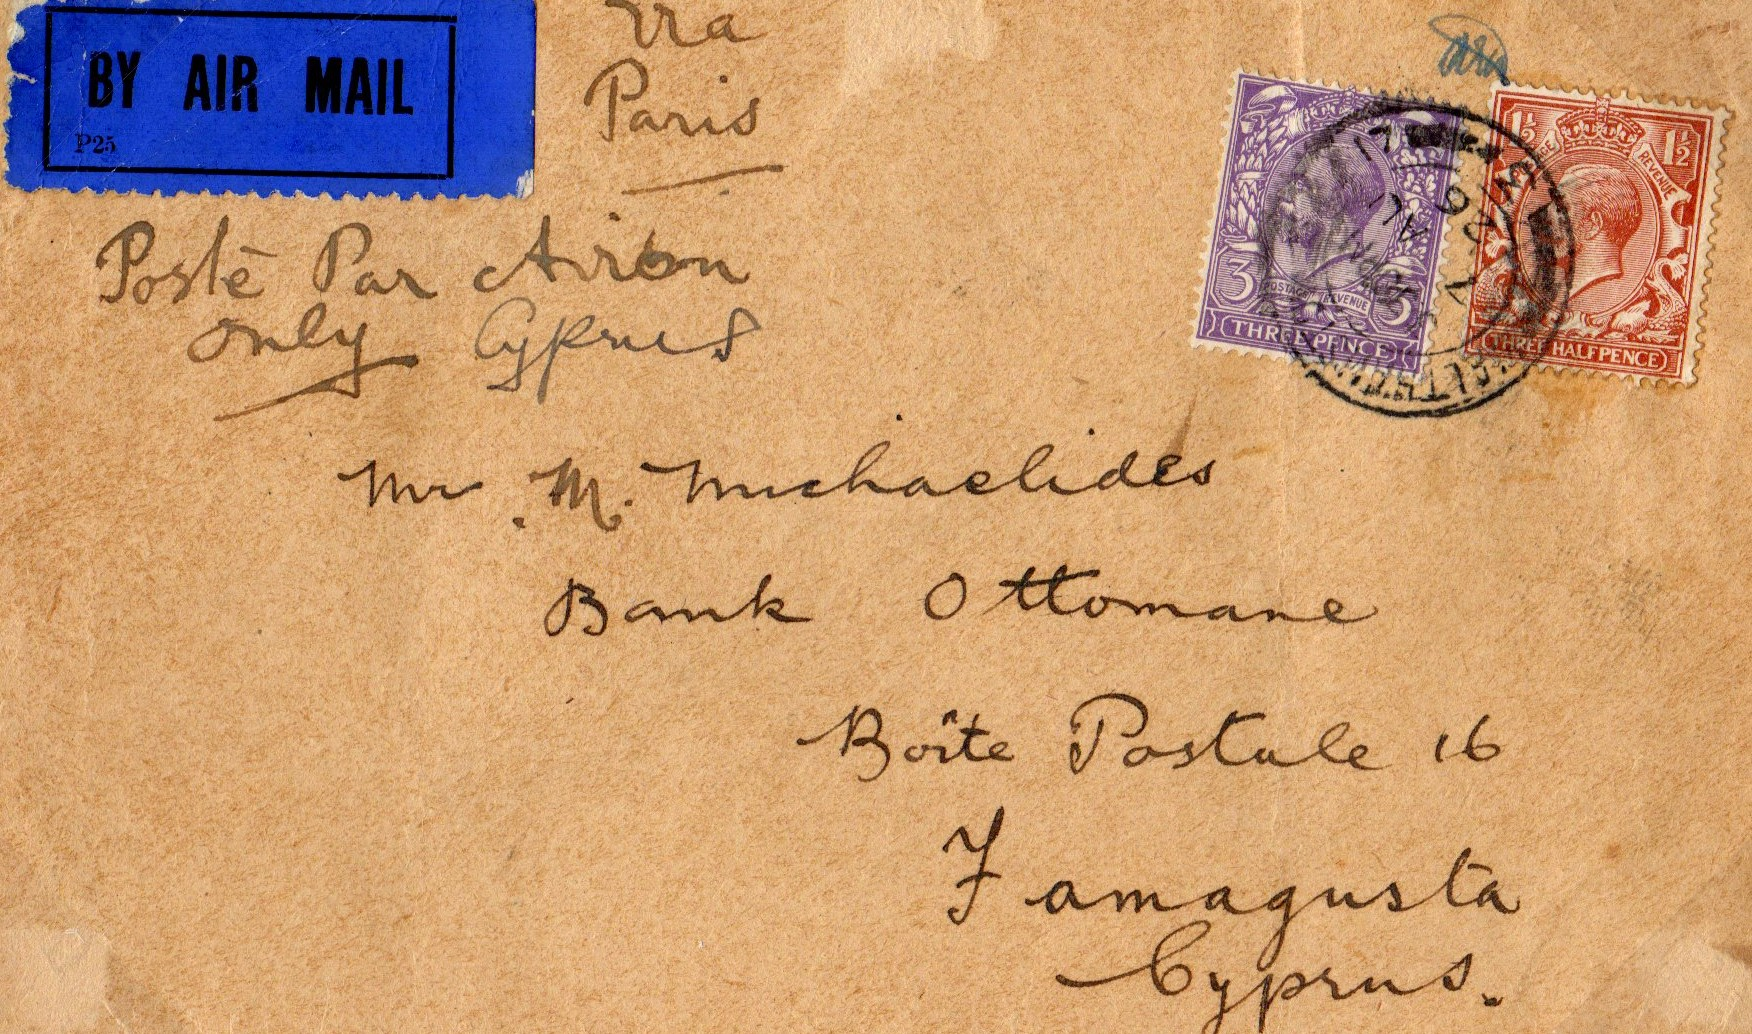 BY AIR MAIL
P25
Via
Paris
Posté Par Airon
only Cyprus
3 POSTAGE REVENUE 3
THREE PENCE
1½ REVENUE 1½
THREE HALFPENCE
Mr. M. Michaelides
Bank Ottomane
Boîte Postale 16
Famagusta
Cyprus.